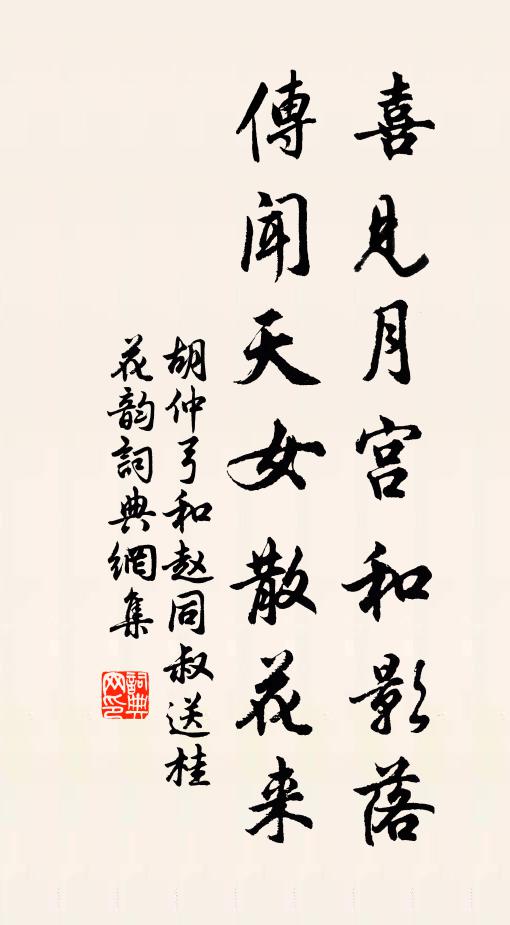 喜見月宫和影落
傳闻天女散花来
胡仲弓和赵同叔送桂
花韵詞典網集
詞典网印